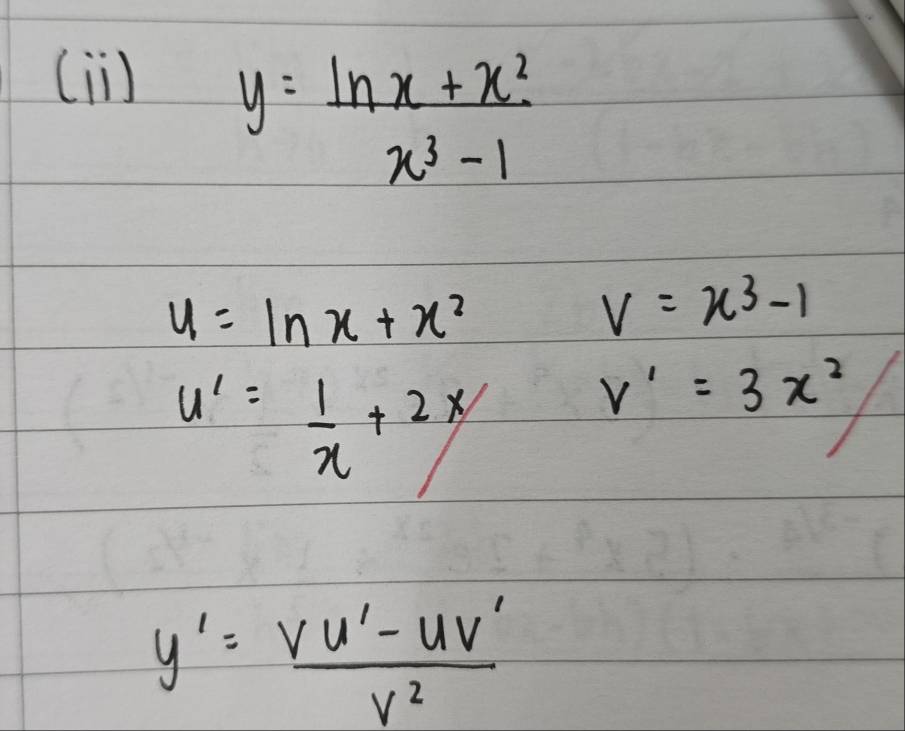 (ii) y = (ln x + x²) / (x³ - 1)
u = ln x + x² v = x³ - 1
u' = 1/x + 2x v' = 3x²
y' = (vu' - uv') / v²